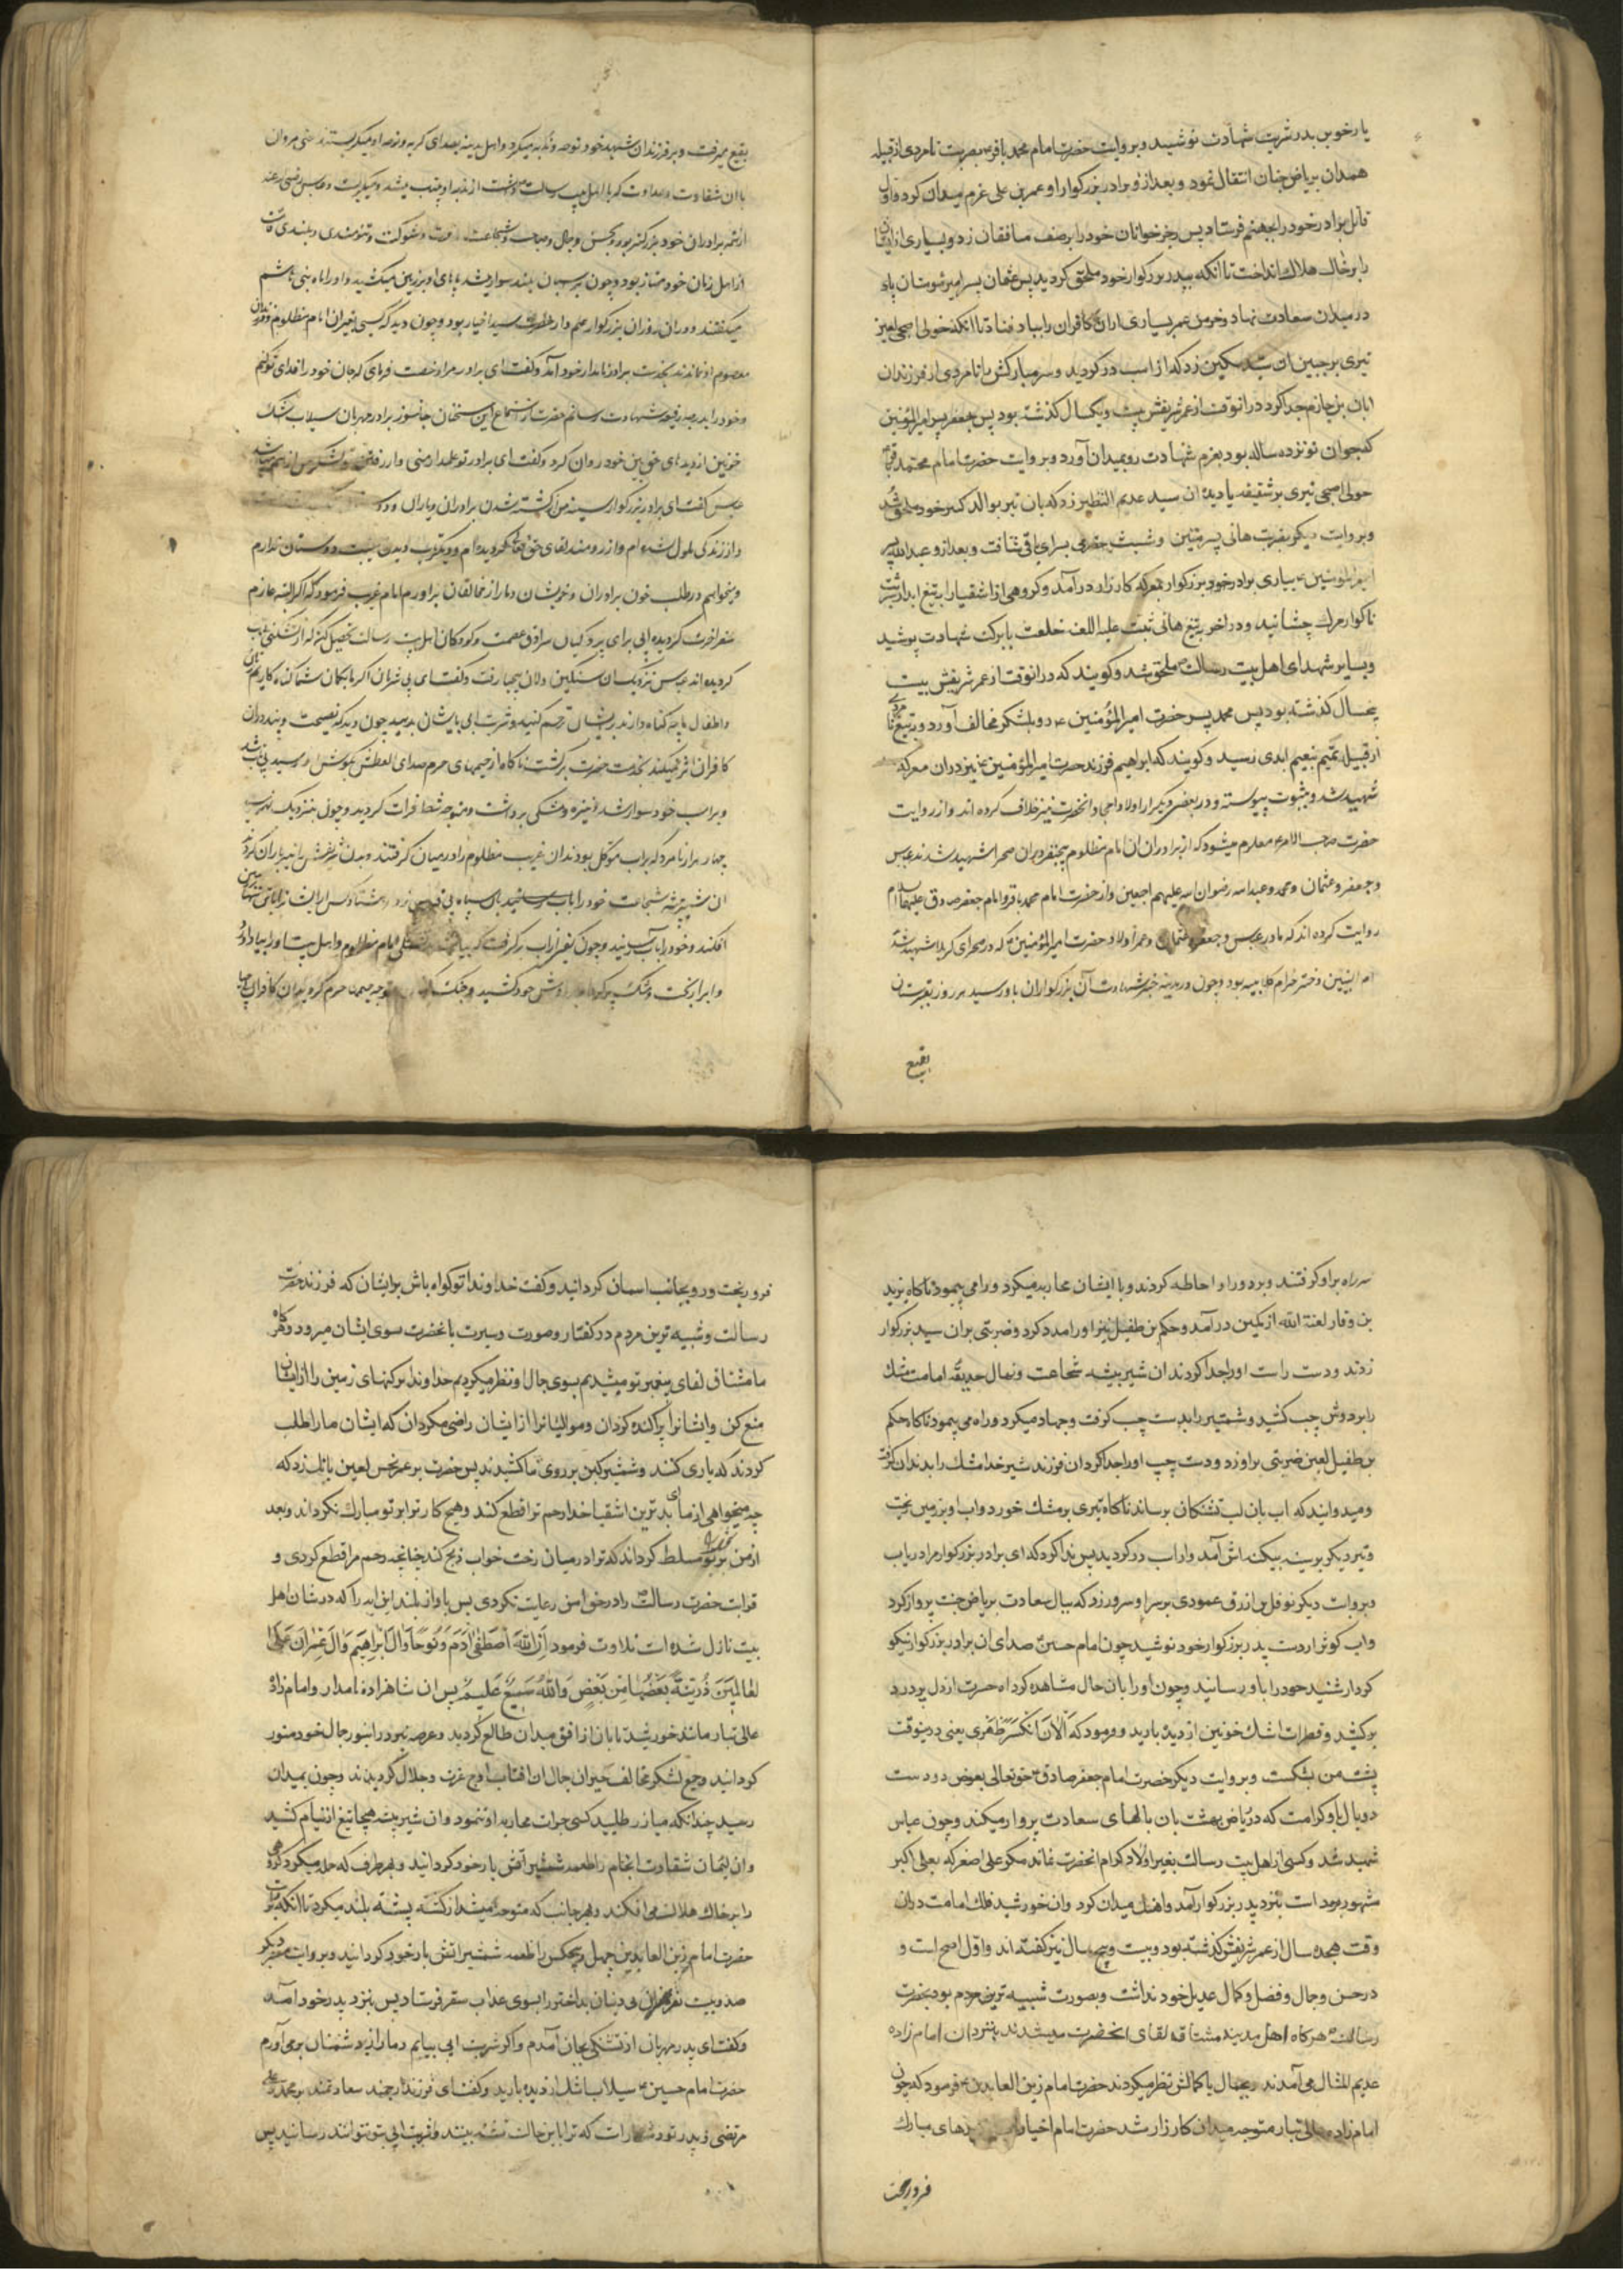 یار خونین بدر شربت شهادت نوشید و بروایت حضرت امام محمد باقر بضربت نامردی از قبیله
همدان بریاض جنان انتقال نمود و بعد ازو برادر بزرگوار او عمر بن علی عزم میدان کرد و اول
قاتل برادر خود را بجهنم فرستاد پس رجزخوانان خود را برصف منافقان زد و بسیاری از ایشان
را بر خاک هلاک انداخت تا آنکه بپدر بزرگوار خود ملحق کردید پس عثمان پسر امیر مومنان پای
در میدان سعادت نهاد و خرمن عمر بسیاری از ان کافران را بباد فنا داد تا آنکه خولی اصبحی لعین
تیری بر جبین ان سید مسکین زد که از اسب در کردید و سر مبارکش را نامردی از فرزندان
ابان بن حازم جدا کرد در انوقت از عمر شریفش بیست و یکسال کذشته بود پس جعفر پسر امیر المؤمنین
که جوان نوزده ساله بود بعزم شهادت رو بمیدان آورد و بروایت حضرت امام محمد باقر
خولی اصبحی تیری بر شقیقه یا دیده ان سید عدیم النظیر زد که بان تیر بوالد کبیر خود ملحق شد
و بروایت دیکر بضربت هانی پسر ثبیت حضرمی بسرای باقی شتافت و بعد ازو عبد الله پسر
امیر المؤمنین بیاری برادر خود بزرکوار بمعرکه کارزار در آمد و کروهی از اشقیا را بتیغ ابدار شربت
ناکوار مرک چشانید و در اخر بتیغ هانی ثبیت علیه اللعنه خلعت با برکت شهادت پوشید
و بسایر شهدای اهل بیت رسالت ملحق شد و کویند که در انوقت از عمر شریفش بیست
پنجسال کذشته بود پس محمد پسر حضرت امیر المؤمنین ع رو بلشکر مخالف آورد و بتیغ نامردی
از قبیله تمیم بنعیم ابدی رسید و کویند که ابراهیم فرزند حضرت امیر المؤمنین نیز در ان معرکه
شهید شد و بثبوت پیوسته و در بعضی دیکر از اولاد امجاد انحضرت نیز خلاف کرده اند و از روایت
حضرت صاحب الامر ع معلوم میشود که از برادران ان امام مظلوم پنجنفر در ان صحرا شهید شدند عباس
و جعفر و عثمان و محمد و عبد الله رضوان الله علیهم اجمعین و از حضرت امام محمد باقر و امام جعفر صادق علیهما السلام
روایت کرده اند که مادر عباس و جعفر و عثمان و عمر اولاد حضرت امیر المؤمنین ع که در صحرای کربلا شهید شدند
ام البنین دختر حزام کلابیه بود و چون در مدینه خبر شهادت آن بزرکواران باو رسید هر روز بقبرستان
بقیع
بقیع میرفت و بر فرزندان شهید خود نوحه و ندبه میکرد و اهل مدینه بصدای کریه و نوحه او میکریستند حتی مروان
با ان شقاوت و عداوت که با اهل بیت رسالت داشت از ندبه او بیتاب میشد و میکریست و عباس رضی الله عنه
از همه برادران خود بزرکتر بود و بحسن و جمال و صباحت و شجاعت و قوت و شوکت و تنومندی و بلندی قامت
از اهل زمان خود ممتاز بود و چون بر اسبان بلند سوار میشد پاهای او بر زمین میکشید و او را ماه بنی هاشم
میکفتند و در ان روز ان بزرکوار علمدار حضرت سید اخیار بود و چون دید که کسی بغیر ان امام مظلوم و فرزندان
معصوم او نماندند بخدمت برادر نامدار خود آمد و کفت ای برادر مرا رخصت فرمای که جان خود را فدای تو کنم
و خود را بدرجه رفیعه شهادت رسانم حضرت از استماع این سخنان جانسوز برادر مهربان سیلاب اشک
خونین از دیدهای حق بین خود روان کرد و کفت ای برادر تو علمدار منی و از رفتن تو لشکر من از هم میپاشد
عباس کفت ای برادر بزرکوار سینه من از کشته شدن برادران و یاران و دوستان
و از زندکی ملول شده ام و آرزومند لقای حق تعالی کردیده ام و دیکر تاب دیدن مصیبت دوستان ندارم
و میخواهم در طلب خون برادران و خویشان دمار از مخالفان برآورم امام غریب فرمود که اکر البته عازم
سفر اخرت کردیده ابی برای پردکیان سرادق عصمت و کودکان اهل بیت رسالت تحصیل کن که از تشنکی بیتاب
کردیده اند عباس نزدیک ان سنکین دلان بیحیا رفت و کفت ای بی شرمان اکر ما بکمان شما کناه کاریم زنان
و اطفال ما چه کناه دارند بر ایشان ترحم کنید و شربت ابی بایشان بدهید چون دید که نصیحت و پند در ان
کافران اثر نمیکند بخدمت حضرت برکشت ناکاه از خیمهای حرم صدای العطش بکوش او رسید بی تاب شد
و بر اسب خود سوار شد و نیزه و مشکی برداشت و متوجه شط فرات کردید و چون بنزدیک نهر رسید
چهار هزار نامرد که بر اب موکل بودند ان غریب مظلوم را در میان کرفتند و بدن شریفش را تیرباران کردند
ان شیر بیشه شجاعت خود را بان سپاه بی قیاس زد و هشتاد کس از ایشان را بآتش
افکند و خود را باب رسانید و چون کفی از اب برکرفت که بیاشامد تشنکی امام مظلوم و اهل بیت او را بیاد آورد
و اب را ریخت و مشک پر کرد و بر دوش خود کشید و جنک کنان متوجه خیمه حرم کردید ان کافران بیحیا
سر راه بر او کرفتند و بر دور او احاطه کردند و با ایشان محاربه میکرد و راه می پیمود ناکاه یزید
بن وقار لعنة الله از کمین در آمد و حکم بن طفیل نیز او را مدد کرد و ضربتی بر ان سید بزرکوار
زدند و دست راست او را جدا کردند ان شیر بیشه شجاعت و نهال حدیقه امامت مشک
را بر دوش چپ کشید و شمشیر را بدست چپ کرفت و جهاد میکرد و راه می پیمود ناکاه حکم
بن طفیل لعین ضربتی بر او زد و دست چپ او را جدا کرد ان فرزند شیر خدا مشک را بدندان کرفت
و میدوانید که اب بان لب تشنکان برساند ناکاه تیری بر مشک خورد و اب او بر زمین ریخت
و تیر دیکر بر سینه بیکینه اش آمد و از اسب در کردید پس ندا کرد که ای برادر بزرکوار مرا دریاب
و بروایت دیکر نوفل بن ازرق عمودی بر سر او سرور زد که ببال سعادت بریاض جنت پرواز کرد
و اب کوثر از دست پدر بزرکوار خود نوشید چون امام حسین صدای ان برادر بزرکوار نیکو
کردار شنید خود را باو رسانید و چون او را بان حال مشاهده کرد آه حسرت از دل پر درد
برکشید و قطرات اشک خونین از دیده بارید و فرمود که اَلْآنَ انْکَسَرَ ظَهْری یعنی درینوقت
پشت من بشکست و بروایت دیکر حضرت امام جعفر صادق حق تعالی بعوض دو دست
دو بال باو کرامت که در ریاض بهشت بان بالهای سعادت پرواز میکند و چون عباس
شهید شد و کسی از اهل بیت رسالت بغیر اولاد کرام انحضرت نماند مکر علی اصغر که بعلی اکبر
مشهور بوده است بنزد پدر بزرکوار آمد و اهنک میدان کرد و ان خورشید فلک امامت در ان
وقت هجده سال از عمر شریفش کذشته بود و بیست و پنج سال نیز کفته اند و اول اصح است و
در حسن و جمال و فضل و کمال عدیل خود نداشت و بصورت شبیه ترین مردم بود بحضرت
رسالت هرکاه اهل مدینه مشتاق لقای انحضرت میشدند بنزد ان امام زاده
عدیم المثال می آمدند و بجمال با کمالش نظر میکردند حضرت امام زین العابدین ع فرمود که چون
امام زاده عالی تبار متوجه میدان کارزار شد حضرت امام اخیار اب از دیدهای مبارک
فرو ریخت
فرو ریخت و رو بجانب اسمان کردانید و کفت خداوندا تو کواه باش بر ایشان که فرزند حضرت
رسالت و شبیه ترین مردم در کفتار و صورت و سیرت بانحضرت سوی ایشان میرود و هرکاه
ما مشتاق لقای پیغمبر تو میشدیم بسوی جمال او نظر میکردیم خداوندا برکتهای زمین را از ایشان
منع کن و ایشانرا پراکنده کردان و موالیانرا از ایشان راضی مکردان که ایشان ما را طلب
کردند که یاری کنند و شمشیر کین بر روی ما کشیدند پس حضرت بر عمر نحس لعین بانک زد که
چه میخواهی از ما ای بدترین اشقیا خدا رحم ترا قطع کند و هیچ کار ترا بر تو مبارک نکرداند و بعد
از من بر تو مسلط کرداند که ترا در میان رخت خواب ذبح کند چنانچه رحم مرا قطع کردی و
قرابت حضرت رسالت را در حق من رعایت نکردی پس باواز بلند این ایه را که در شان اهل
بیت نازل شده است تلاوت فرمود اِنَّ اللهَ اصْطَفٰی آدَمَ وَنُوحًا وَآلَ اِبْرٰاهیمَ وَآلَ عِمْرٰانَ عَلَی
العٰالَمِینَ ذُرِّیَّةً بَعْضُهٰا مِنْ بَعْضٍ وَاللهُ سَمیعٌ عَلیمٌ پس ان شاهزاده نامدار و امام زاده
عالی تبار مانند خورشید تابان از افق میدان طالع کردید و عرصه نبرد را بنور جمال خود منور
کردانید و جمیع لشکر مخالف حیران جمال ان افتاب اوج عزت و جلال کردیدند و چون بمیدان
رسید چندانکه مبارز طلبید کسی جرات محاربه او ننمود و ان شیر بیشه هیجا تیغ از نیام کشید
و ان لئیمان شقاوت انجام را طعمه شمشیر آتش بار خود کردانید و بهر طرف که حمله میکرد کروهی
را بر خاک هلاک می افکند و بهر جانب که متوجه میشد از کشته پشته بلند میکرد تا آنکه بروایت
حضرت امام زین العابدین چهل و پنجکس را طعمه شمشیر اتش بار خود کردانید و بروایت معتبر دیکر
صد و بیست نفر از ان بی دینان بد اختر را بسوی عذاب سقر فرستاد پس بنزد پدر خود آمد
و کفت ای پدر مهربان از تشنکی بجان آمدم و اکر شربت ابی بیابم دمار از دشمنان برمی آورم
حضرت امام حسین ع سیلاب اشک از دیده بارید و کفت ای فرزند ارجمند سعادتمند بر محمد و علی
مرتضی و پدر تو دشوار است که ترا باین حالت تشنه بینند و شربت ابی بتو نتوانند رسانید پس